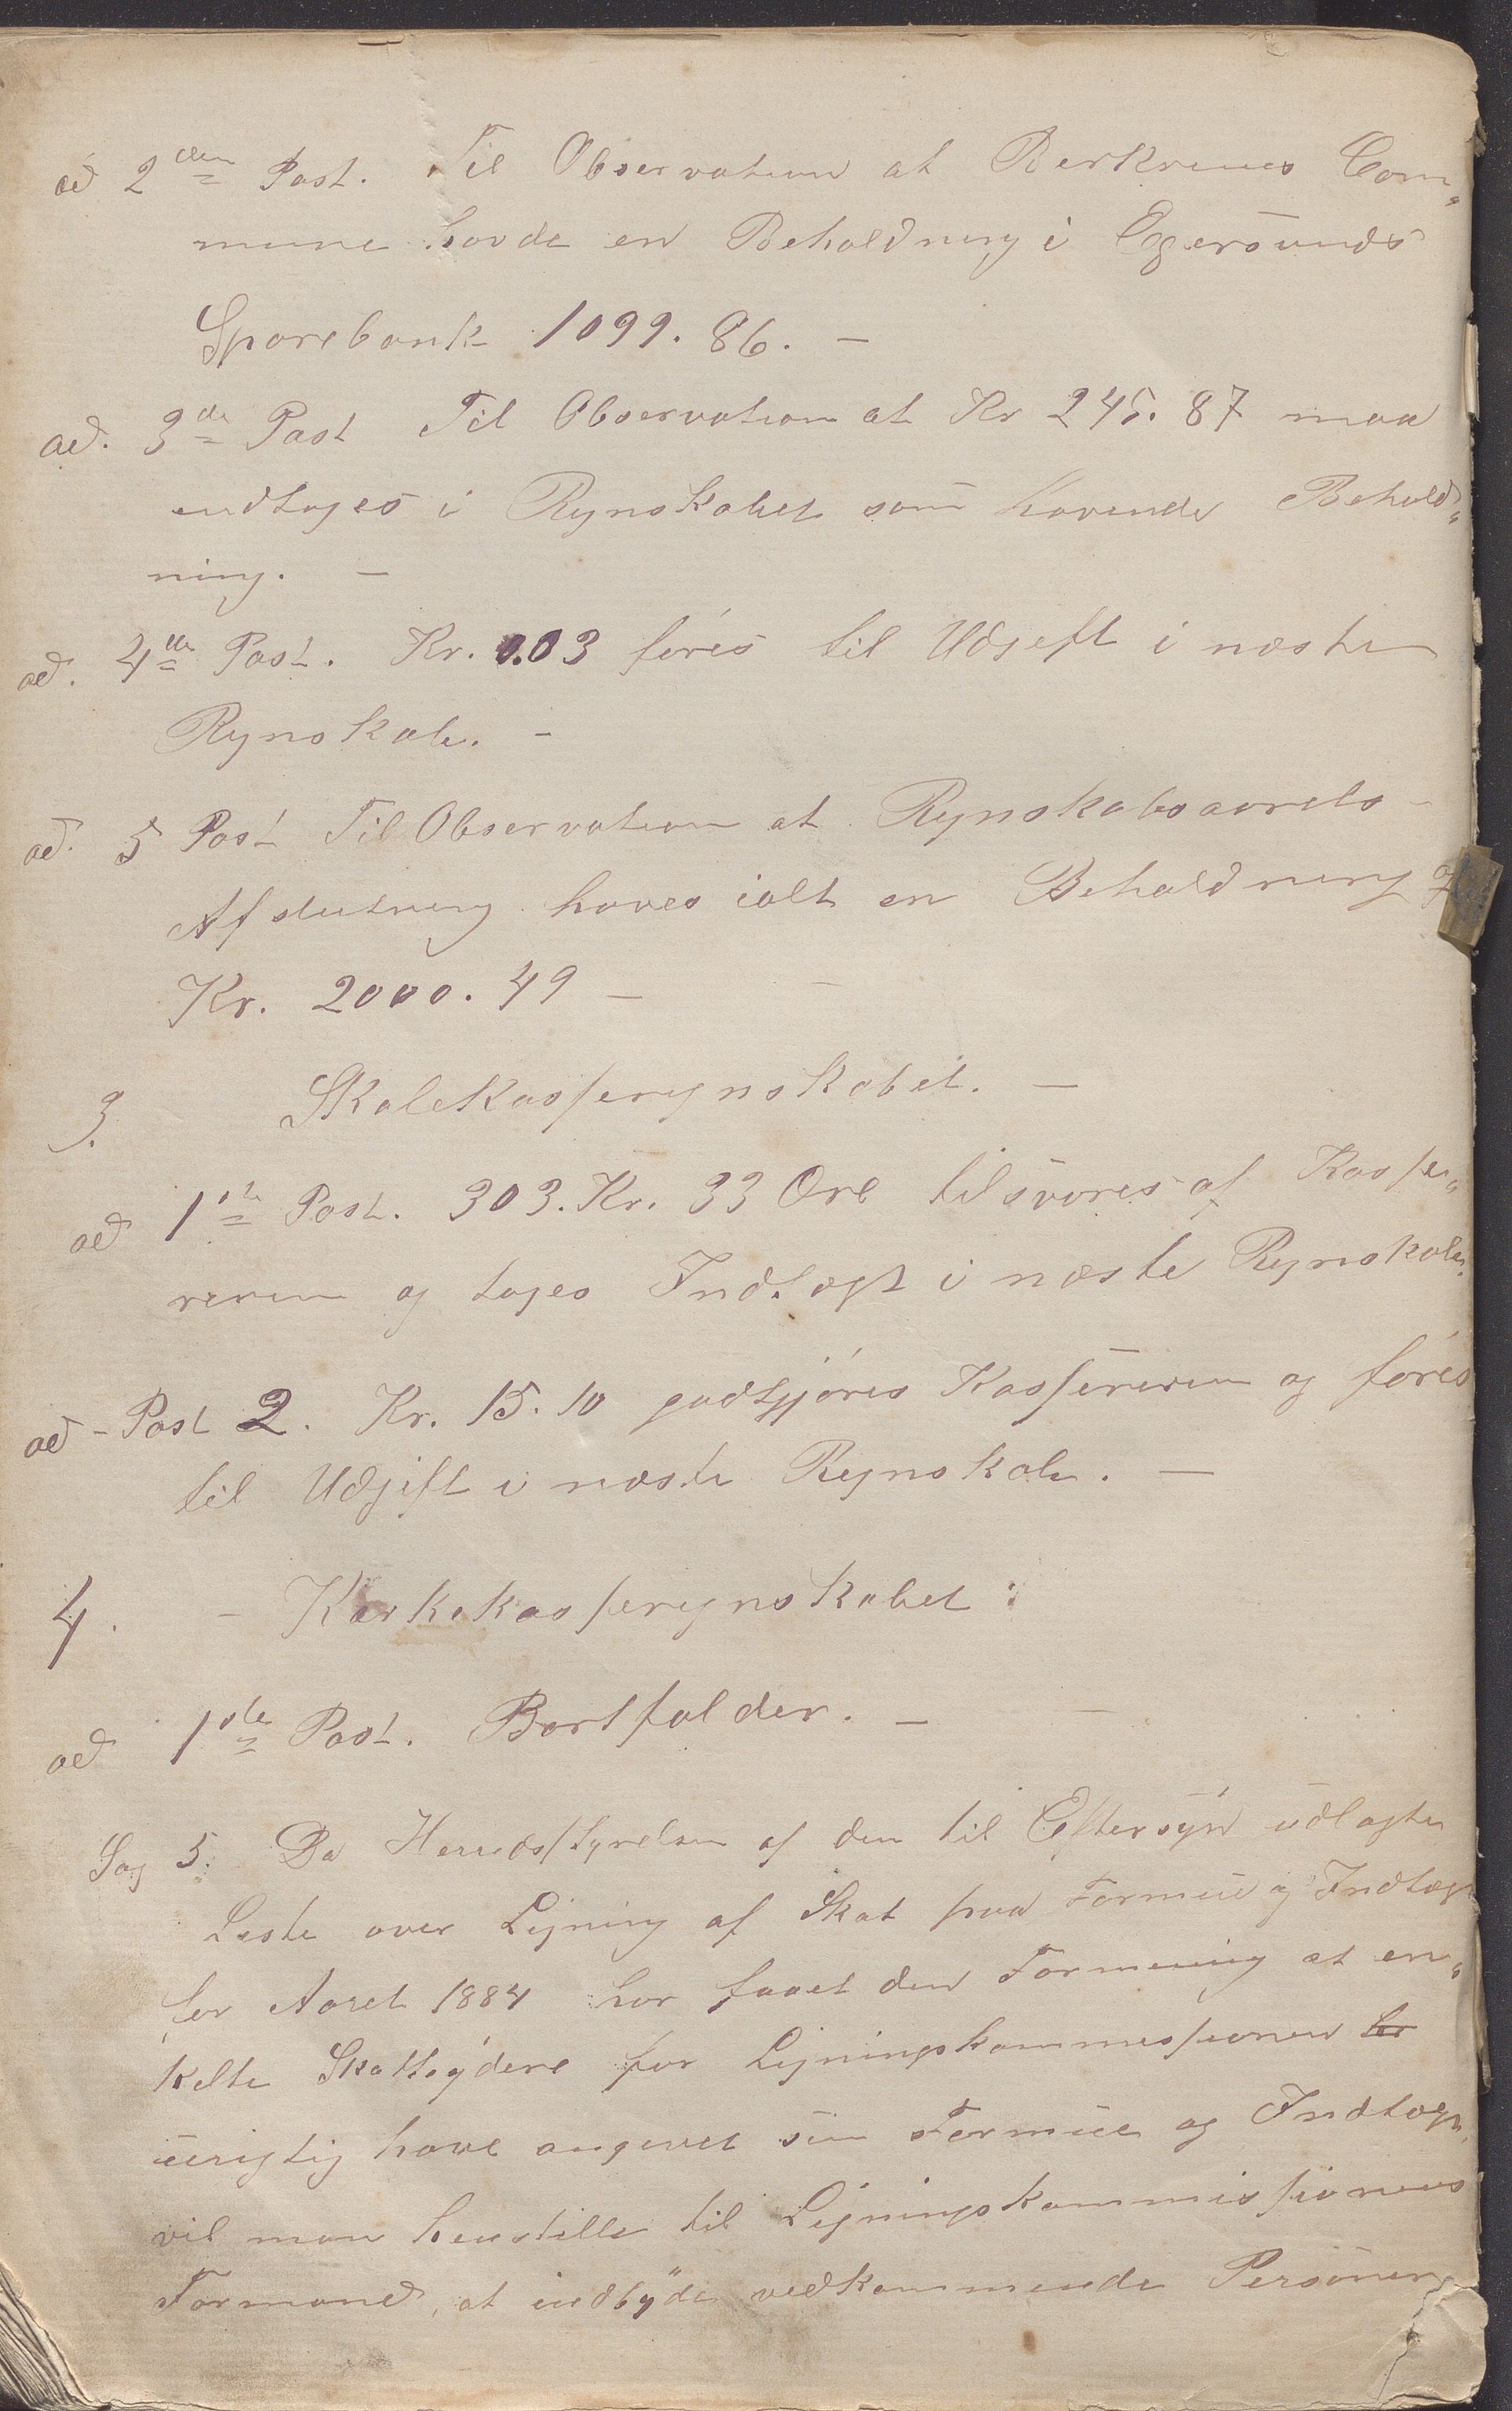 ad 2den Post. Til Observation at Berkrems Com„
mune havde en Beholdning i Egersunds
Sparebank 1099.86. —
ad. 3de Post Til Observation at Kr 245.87 maa
indtages i Regnskabet som havende Behold„
ning. —
ad. 4de Post. Kr. 0.03 föres til Udgift i næste
Regnskab. -
ad. 5 Post Til Observation at Regnskabsaarets
Afslutning haves ialt en Beholdning af
Kr. 2000.49 —
3. Skolekasseregnskabet. —
ad 1ste Post. 303. Kr. 33 Öre tilsvares af Kasse„
reren og tages Indtægt i næste Regnskab.
ad - Post 2. Kr. 15.10 godtgjöres Kassereren og föres
til Udgift i næste Regnskab. —
4. - Kirkekasseregnskabet:
ad 1ste Post. Bortfalder. —
Sag 5. Da Herredsstyrelsen af den til Eftersyn udlagte
Liste over Ligning af Skat paa Formue og Indtægt
for Aaret 1884 har faaet den Formening at en„
kelte Skatteydere for Ligningskommissionen har
urigtig have angivet sin Formue og Indtægt,
vil man henstille til Ligningskommissionens
Formand, at indbyde vedkommende Personer